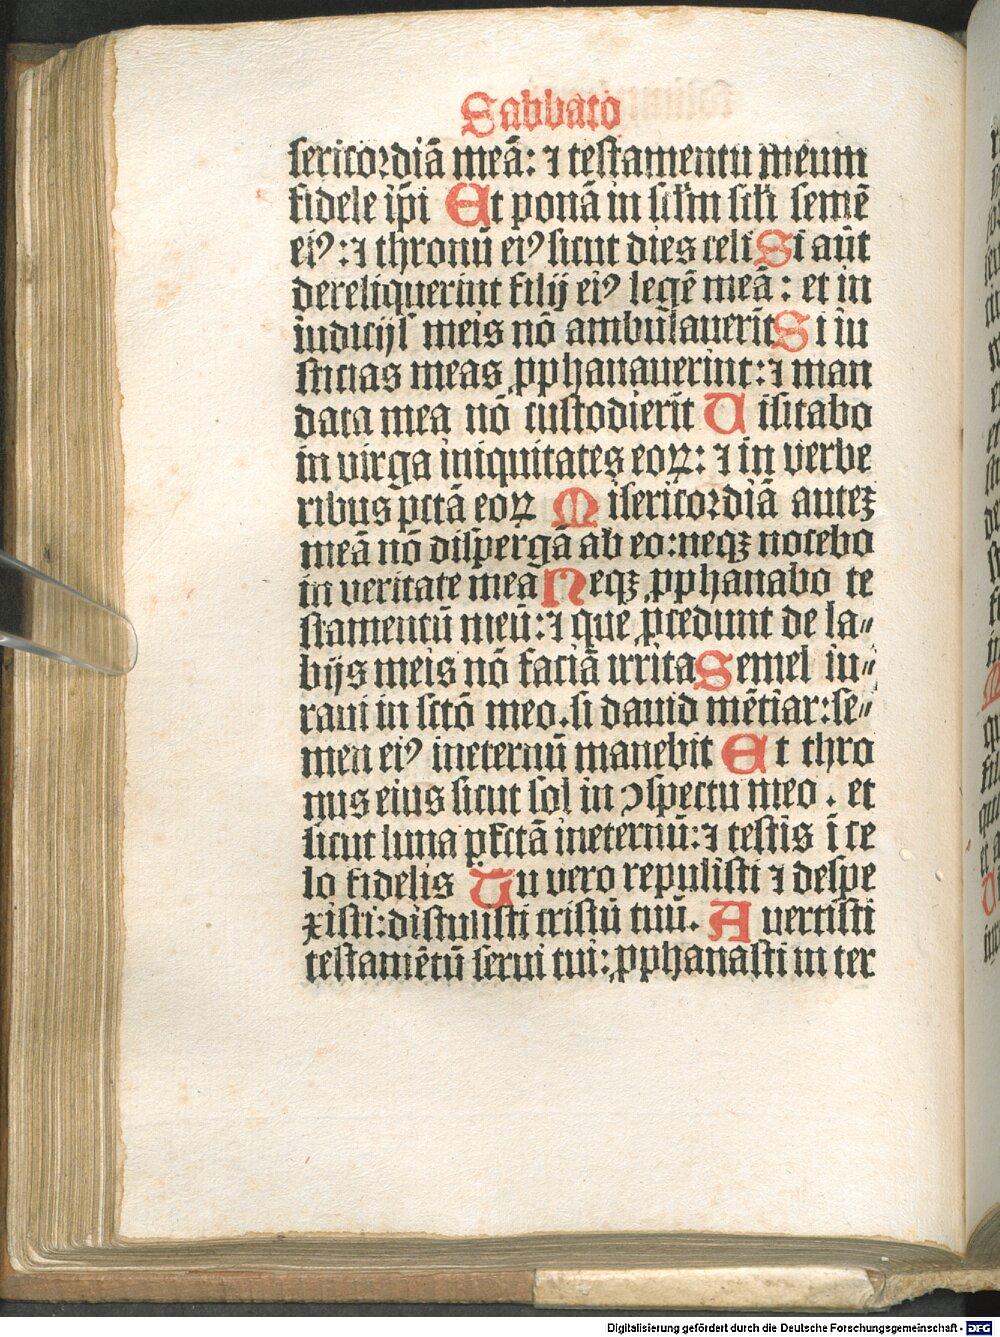 Sabbato
sericordiā meā: ⁊ testamentu meum
fidele ip̄i Et ponā in sc̄lm̄ sc̄li semē
eiꝰ: ⁊ thronū eiꝰ sicut dies celi Si aūt
dereliquerint filij eiꝰ legē meā: et in
iudicijs meis nō ambulauerīt Si iu
sticias meas ꝓphanauerint: ⁊ man
data mea nō custodierīt Uisitabo
in virga iniquitates eoꝝ: ⁊ in verbe
ribus pctā eoꝝ Misericordiā auteꝫ
meā nō dispergā ab eo: neqꝫ nocebo
in veritate mea Neqꝫ ꝓphanabo te
stamentū meū: ⁊ que ꝓcedunt de la⸗
bijs meis nō faciā irrita Semel iu⸗
raui in sctō meo. si dauid mētiar: se⸗
men eiꝰ ineternū manebit Et thro
nus eius sicut sol in ꝯspectu meo. et
sicut luna ꝑfctā ineternū: ⁊ testis ī ce
lo fidelis Tu vero repulisti ⁊ despe
xisti: distulisti cristū tuū. Auertisti
testamētū serui tui: ꝓphanasti in ter
Digitalisierung gefördert durch die Deutsche Forschungsgemeinschaft - DFG